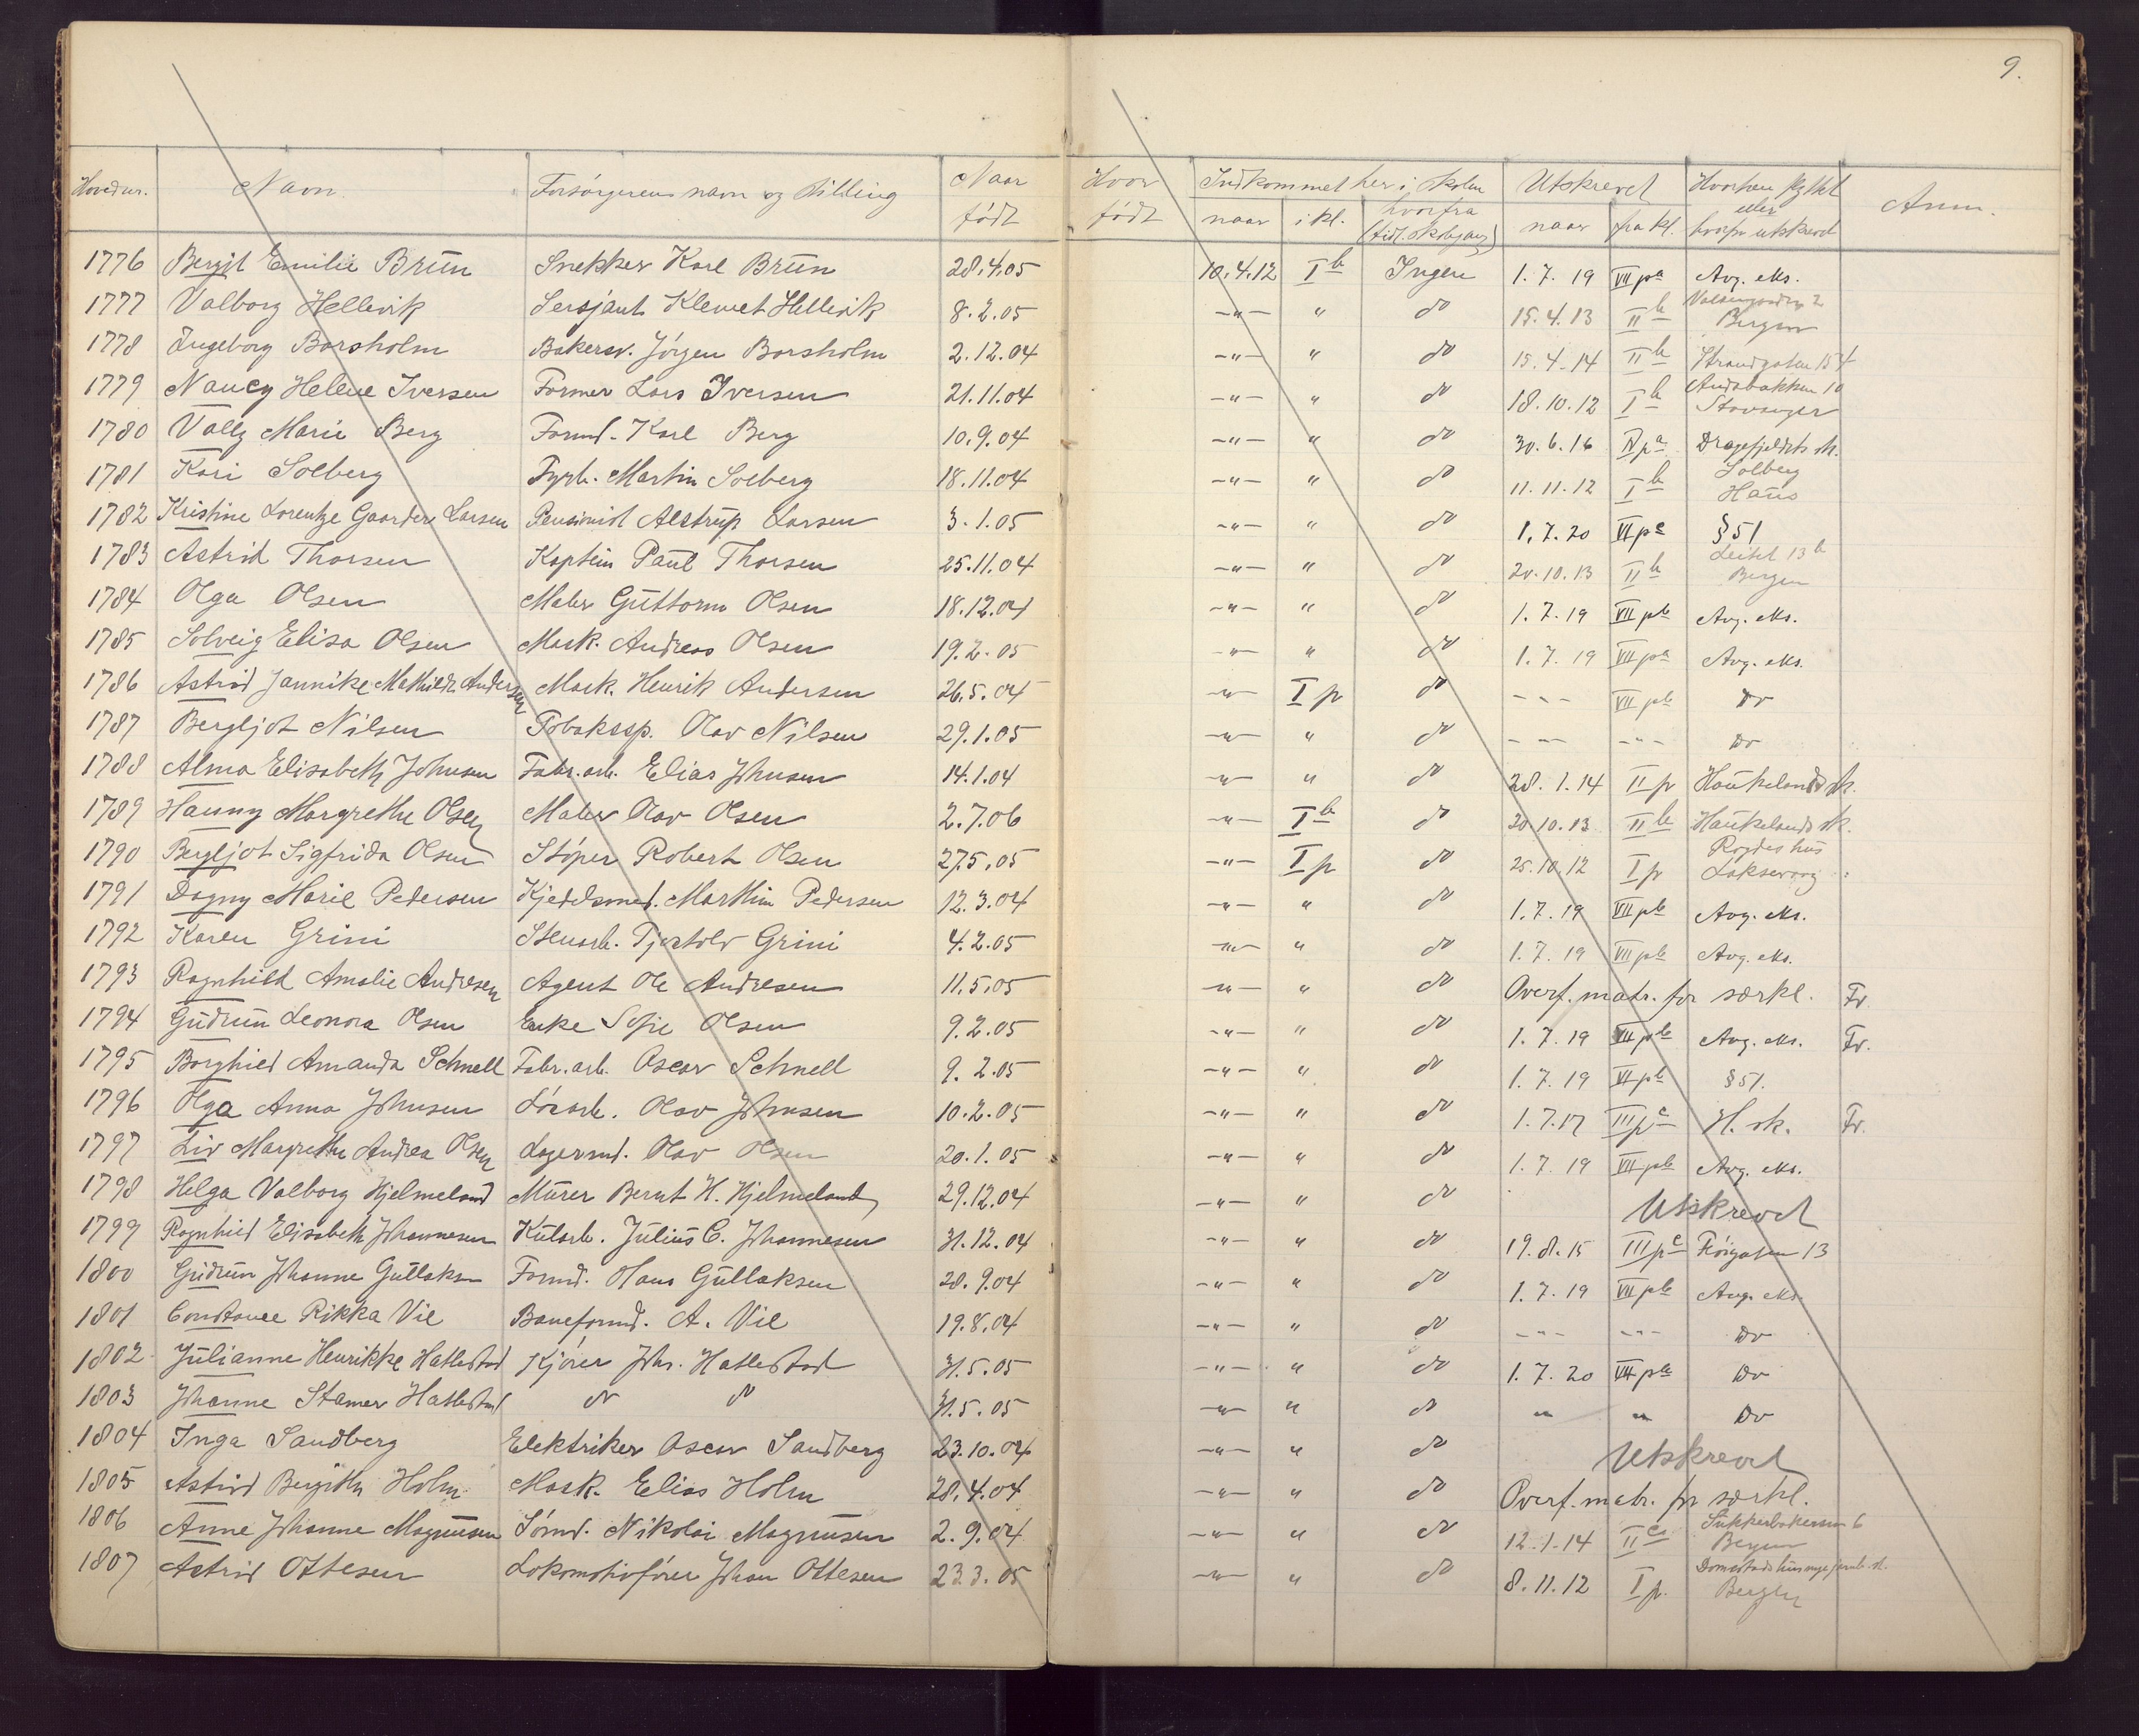 9.
Hovednr. Navn. Forsörgerens navn og stilling Naar födt Hvor födt Indkommet her i skolen naar i kl. hvorfra (tidl. skolegang) Utskrevet naar fra kl. Hvorhen flyttet eller hvorfor utskrevet Anm.
1776 Bergit Emilie Brün Snekker Karl Brün 28.4.05 10.4.12 I b Ingen 1.7.19 VII pa Avg. eks.
1777 Valborg Hellevik Sersjant Klemet Hellevik 8.2.05 -"- " do 15.4.13 II b Bergen
1778 Ingeborg Borsholm Bakersv. Jörgen Borsholm 2.12.04 -"- " do 15.4.14 II b Strandgaten 154
1779 Nancy Helene Iversen Former Lars Iversen 21.11.04 -"- " do 18.10.12 I b Stavanger
1780 Vally Marie Berg Formd. Karl Berg 10.9.04 -"- " do 30.6.16 IV pa Dragefjeldets sk.
1781 Kari Solberg Fyrb. Martin Solberg 18.11.04 -"- " do 11.11.12 I b Solberg Haus
1782 Kristine Lorentze Gaarder Larsen Pensionist Alstrup Larsen 3.1.05 -"- " do 1.7.20 VI pa § 51
1783 Astrid Thorsen Kaptein Paul Thorsen 25.11.04 -"- " do 20.10.13 II b Leitet 13 b Bergen
1784 Olga Olsen Maler Guttorm Olsen 18.12.04 -"- " do 1.7.19 VII pb Avg. eks.
1785 Solveig Elisa Olsen Mask. Andreas Olsen 19.2.05 -"- " do 1.7.19 VII pa Avg. eks.
1786 Astrid Jannike Mathilde Andersen Mask. Henrik Andersen 26.5.04 -"- I p do - - - VII pb do
1787 Bergljot Nilsen Tobakssp. Olav Nilsen 29.1.05 -"- " do -"- -"- do
1788 Alma Elisabeth Johnsen Fabr.arb. Elias Johnsen 14.1.04 -"- " do 28.1.14 II p Haukelands sk.
1789 Hanny Margrethe Olsen Maler Olav Olsen 2.7.06 -"- I b do 20.10.13 II b Haukelands sk.
1790 Bergljot Sigfrida Olsen Stöper Robert Olsen 27.5.05 -"- I p do 25.10.12 I p Laksevaag
1791 Dagny Marie Pedersen Kjedelsmed. Marthin Pedersen 12.3.04 -"- " do 1.7.19 VII pb Avg. eks.
1792 Karen Grini Stenarb. Tjostolv Grini 4.2.05 -"- " do 1.7.19 VII pb Avg. eks.
1793 Ragnhild Amalie Andresen Agent Ole Andresen 11.5.05 -"- " do Overf. matr. for særkl. Fr.
1794 Gudrun Leonora Olsen Enke Sofie Olsen 9.2.05 -"- " do 1.7.19 VII pb Avg. eks. Fr.
1795 Borghild Amanda Schnell Fabr.arb. Oscar Schnell 9.2.05 -"- " do 1.7.19 VI pb § 51.
1796 Olga Anna Johnsen Lösarb. Olav Johnsen 10.2.05 -"- " do 1.7.17 III pc H. sk. Fr.
1797 Liv Margrethe Andrea Olsen Lagermd. Olav Olsen 20.1.05 -"- " do 1.7.19 VII pb Avg. eks.
1798 Helga Valborg Hjelmeland Murer Bernt H. Hjelmeland 29.12.04 -"- " do Utskrevet
1799 Ragnhild Elisabeth Johannesen Kularb. Julius C. Johannesen 31.12.04 -"- " do 19.8.15 III pc 13
1800 Gudrun Johanne Gullaksen Formd. Hans Gullaksen 20.9.04 -"- " do 1.7.19 VII pb Avg. eks.
1801 Constance Rikka Vie Baneformd. A. Vie 19.8.04 -"- " do -"- -"- do
1802 Julianne Henrikke Hatlestad Kjörer Johs. Hatlestad 31.5.05 -"- " do 1.7.20 VII pa do
1803 Johanne Stamer Hatlestad do do 31.5.05 -"- " do " " do
1804 Inga Sandberg Elektriker Oscar Sandberg 23.10.04 -"- " do Utskrevet
1805 Astrid Bergitte Holm Mask. Elias Holm 28.4.04 -"- " do Overf. matr. for særkl.
1806 Anne Johanne Magnussen Sömd. Nikolai Magnussen 2.9.04 -"- " do 12.1.14 II Bergen
1807 Astrid Ottesen Lokomotivförer Johan Ottesen 23.3.05 -"- " do 8.11.12 I p. Bergen